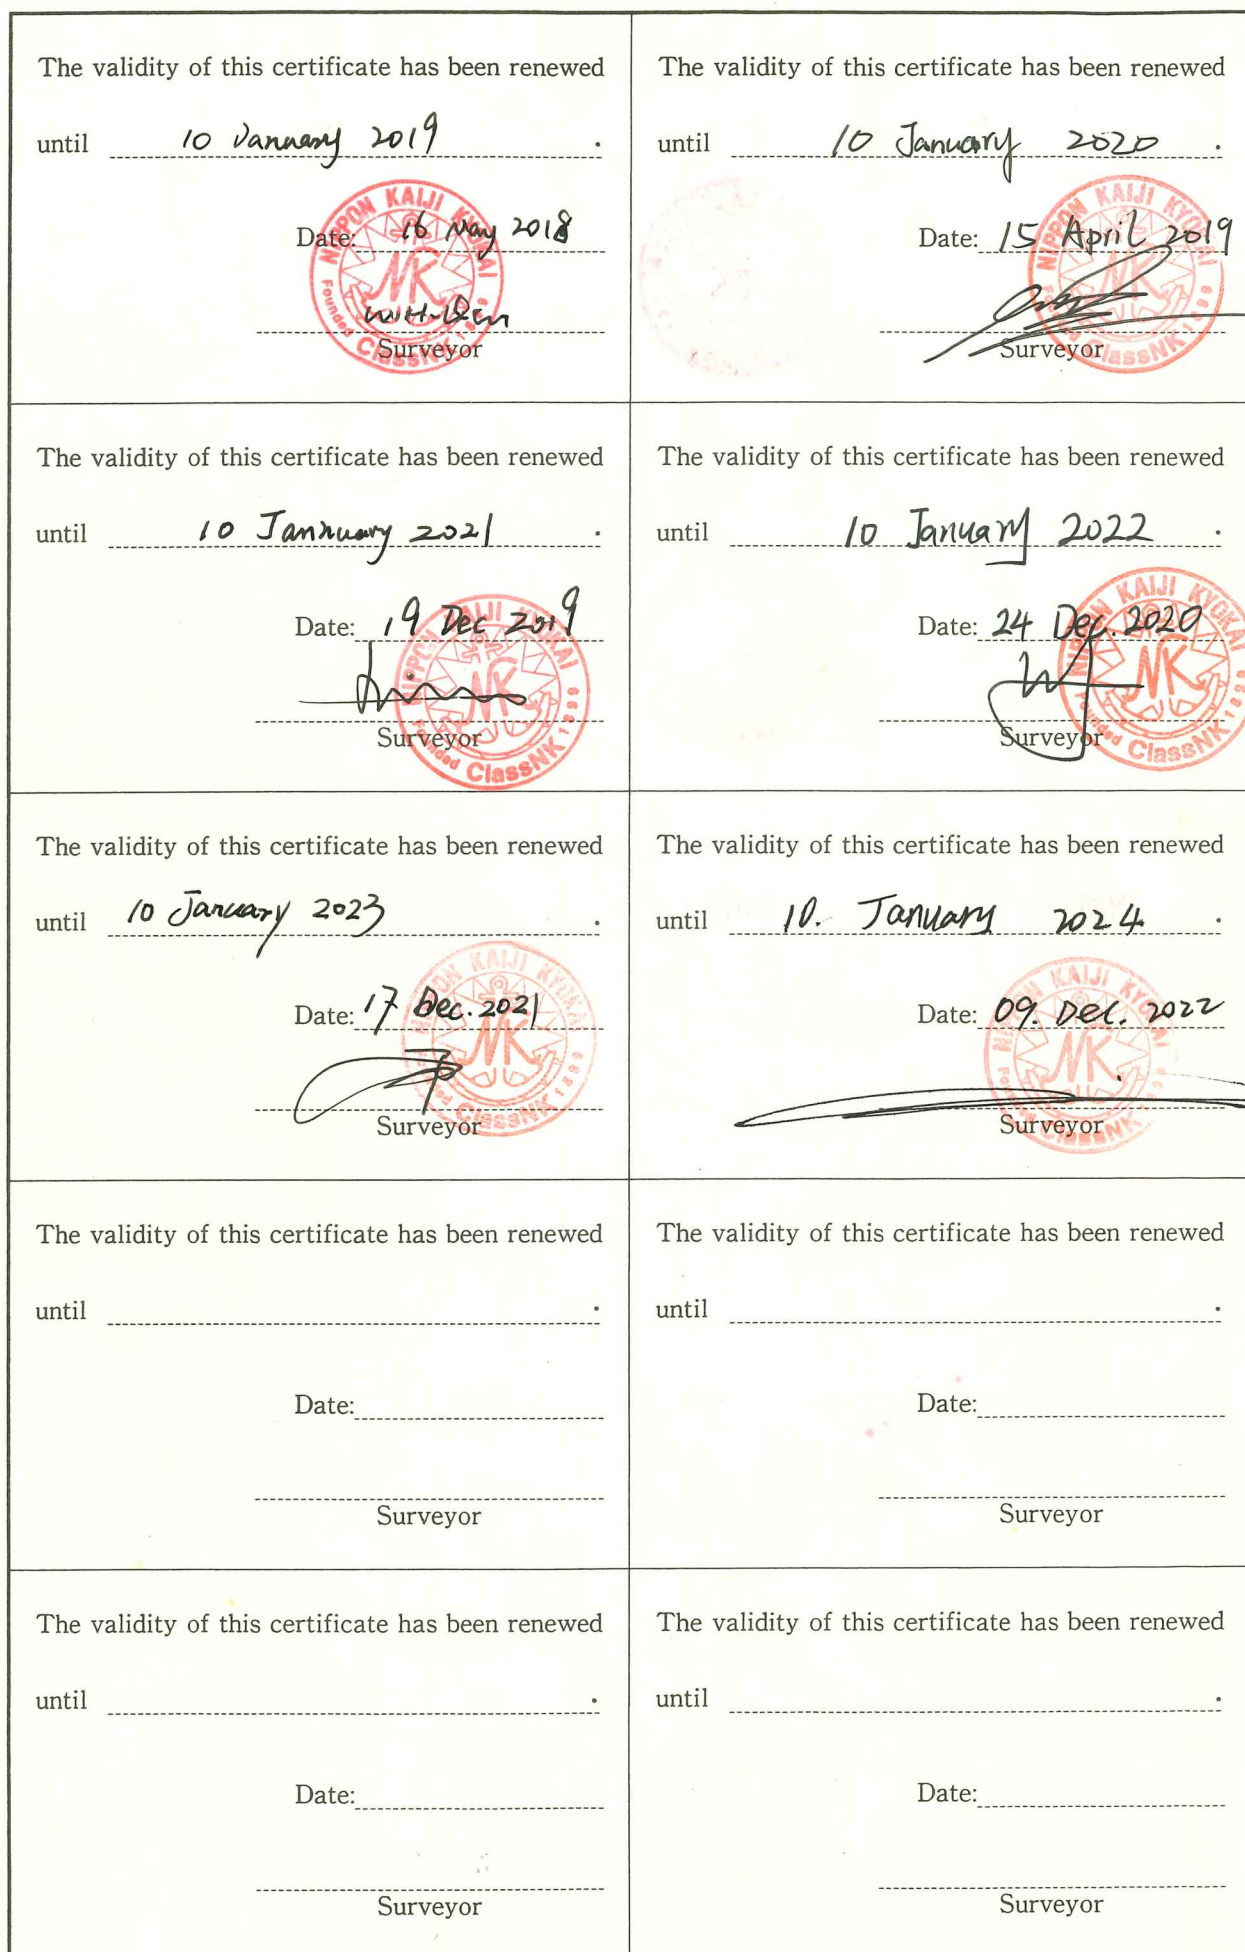 The validity of this certificate has been renewed
until 10 January 2019 .
Date: 16 May 2018
Surveyor
NIPPON KAIJI KYOKAI
NK
Founded 1899
ClassNK
The validity of this certificate has been renewed
until 10 January 2020 .
Date: 15 April 2019
Surveyor
NIPPON KAIJI KYOKAI
NK
Founded 1899
ClassNK
The validity of this certificate has been renewed
until 10 Jannuary 2021 .
Date: 19 Dec 2019
Surveyor
NIPPON KAIJI KYOKAI
NK
Founded 1899
ClassNK
The validity of this certificate has been renewed
until 10 January 2022 .
Date: 24 Dec. 2020
Surveyor
NIPPON KAIJI KYOKAI
NK
Founded 1899
ClassNK
The validity of this certificate has been renewed
until 10 January 2023 .
Date: 17 Dec. 2021
Surveyor
NIPPON KAIJI KYOKAI
NK
Founded 1899
ClassNK
The validity of this certificate has been renewed
until 10. January 2024 .
Date: 09. Dec. 2022
Surveyor
NIPPON KAIJI KYOKAI
NK
Founded 1899
ClassNK
The validity of this certificate has been renewed
until .
Date:
Surveyor
The validity of this certificate has been renewed
until .
Date:
Surveyor
The validity of this certificate has been renewed
until .
Date:
Surveyor
The validity of this certificate has been renewed
until .
Date:
Surveyor